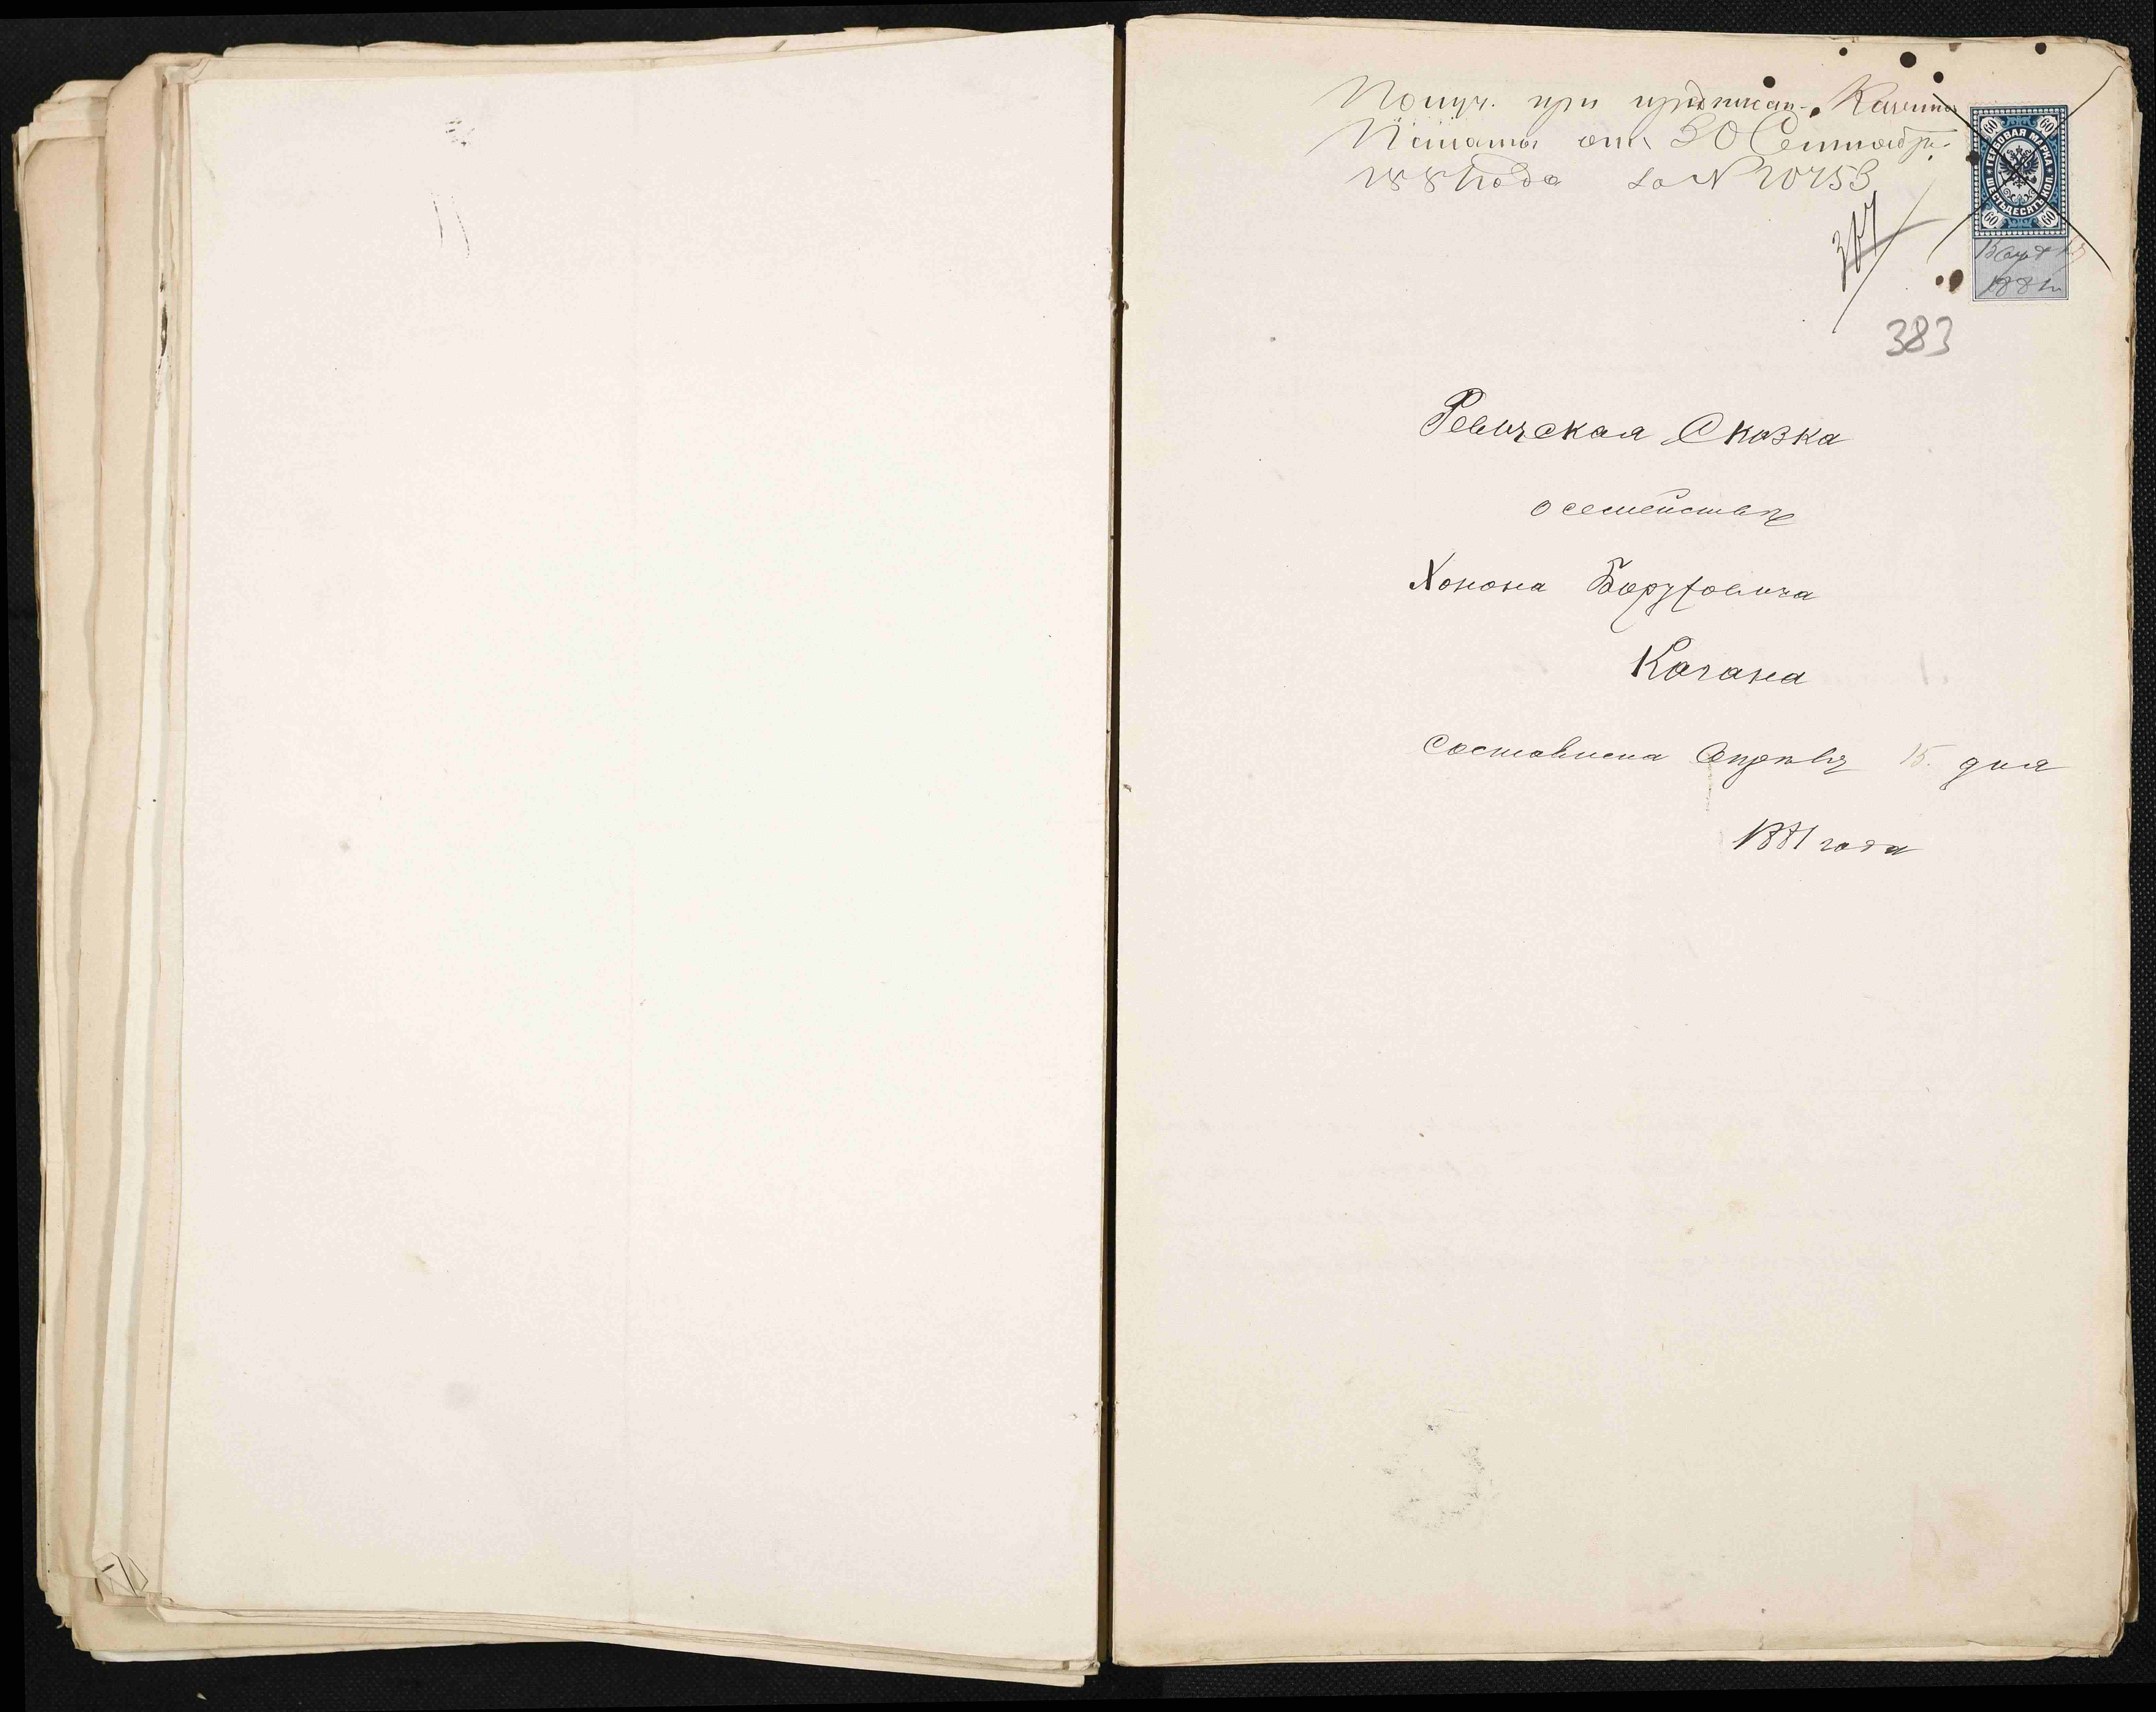 Получ. при предписан. Казенной
Палаты отъ 30 Сентября
1881 года за № 10753
383
ГЕРБОВАЯ МАРКА
ШЕСТЬДЕСЯТЪ КОП.
60 60
60 60
1881
Ревизская Сказка
о семействе
Хонона Боруховича
Когана
Составлена 15 дня
1881 года